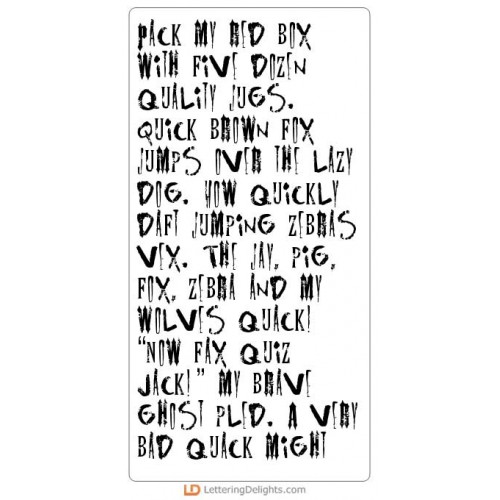 PACK MY RED BOX
WITH FIVE DOZEN
QUALITY JUGS.
QUICK BROWN FOX
JUMPS OVER THE LAZY
DOG. HOW QUICKLY
DAFT JUMPING ZEBRAS
VEX. THE JAY, PIG,
FOX, ZEBRA AND MY
WOLVES QUACK!
“NOW FAX QUIZ
JACK!” MY BRAVE
GHOST PLED. A VERY
BAD QUACK MIGHT
LD LetteringDelights.com